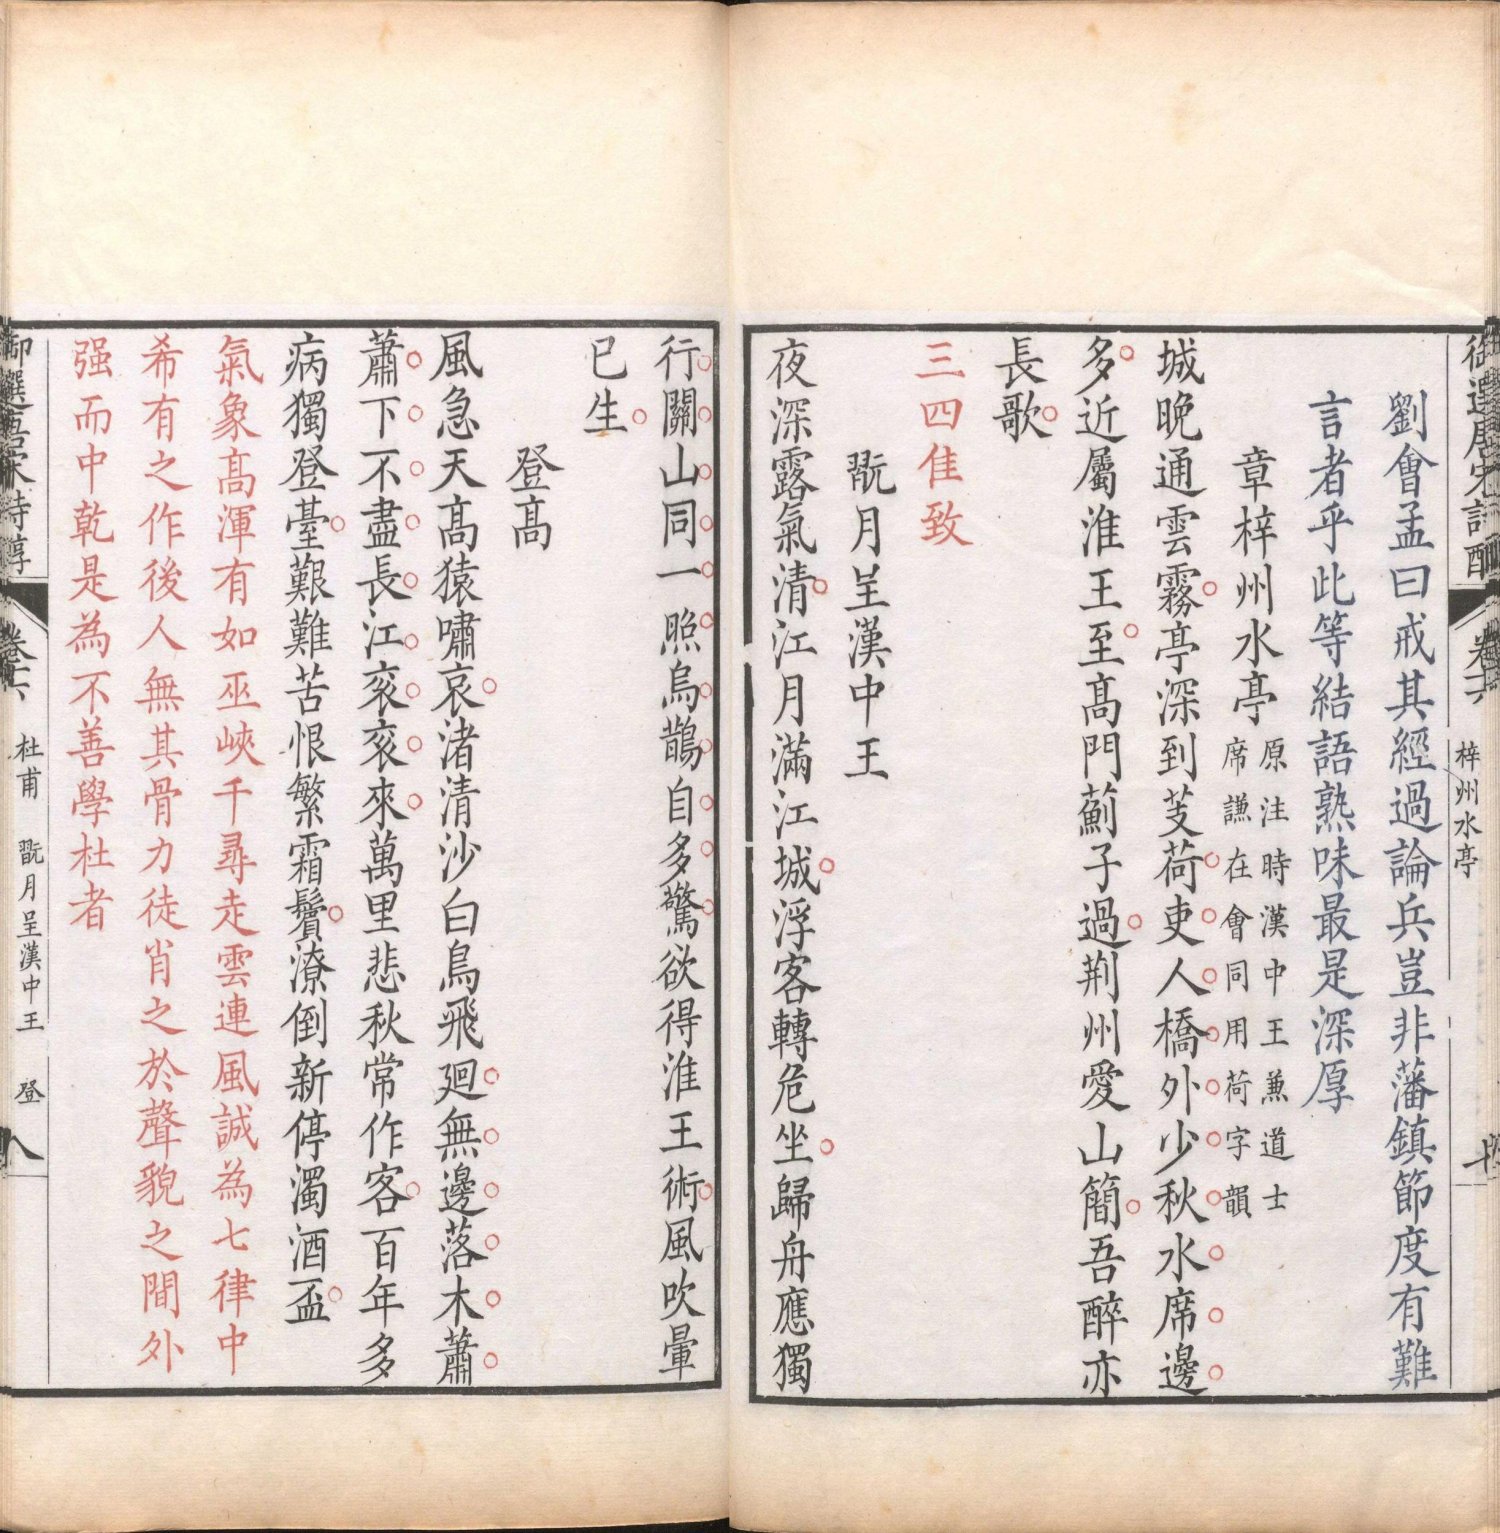 御選唐宋詩醇
卷十六
梓州水亭
劉會孟曰戒其經過論兵豈非藩鎮節度有難
言者乎此等結語熟味最是深厚
章梓州水亭
原注時漢中王兼道士
席謙在會同用荷字韻
城晚通雲霧亭深到芰荷吏人橋外少秋水席邊
多近屬淮王至髙門薊子過荆州愛山簡吾醉亦
長歌
三四佳致
翫月呈漢中王
夜深露氣清江月滿江城浮客轉危坐歸舟應獨
行關山同一照烏鵲自多驚欲得淮王術風吹暈
已生
登髙
風急天髙猿嘯哀渚清沙白鳥飛廻無邊落木蕭
蕭下不盡長江衮衮來萬里悲秋常作客百年多
病獨登臺艱難苦恨繁霜鬢潦倒新停濁酒盃
氣象髙渾有如巫峽千尋走雲連風誠為七律中
希有之作後人無其骨力徒肖之於聲貌之間外
强而中乾是為不善學杜者
御選唐宋詩醇
卷十六
杜甫　翫月呈漢中王　登